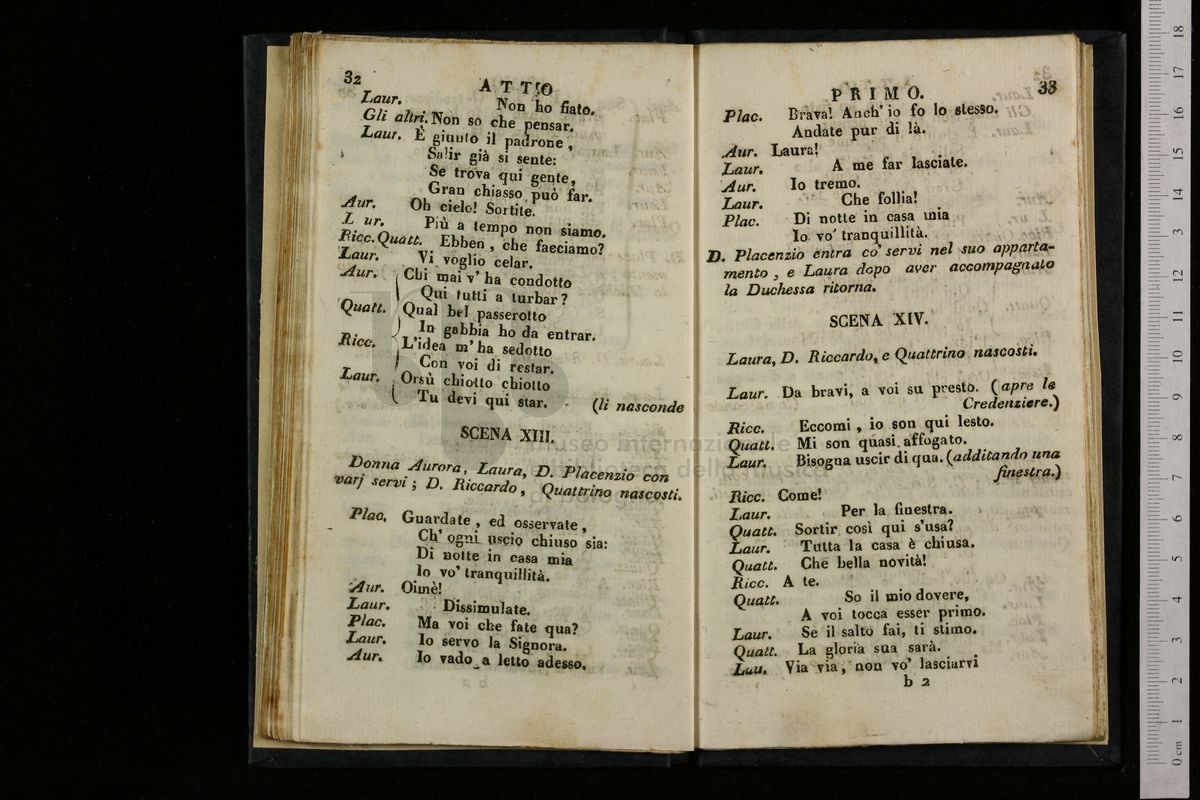 32
ATTO
Laur. Non ho fiato.
Gli altri. Non so che pensar.
Laur. È giunto il padrone,
Salir già si sente:
Se trova qui gente,
Gran chiasso può far.
Aur. Oh cielo! Sortite.
L ur. Più a tempo non siamo.
Ricc. Quatt. Ebben, che facciamo?
Laur. Vi voglio celar.
Aur. Chi mai v' ha condotto
Qui tutti a turbar?
Quatt. Qual bel passerotto
In gabbia ho da entrar.
Ricc. L'idea m' ha sedotto
Con voi di restar.
Laur. Orsù chiotto chiotto
Tu devi qui star. (li nasconde
SCENA XIII.
Donna Aurora, Laura, D. Placenzio con
varj servi; D. Riccardo, Quattrino nascosti.
Plac. Guardate, ed osservate,
Ch' ogni uscio chiuso sia:
Di notte in casa mia
Io vo' tranquillità.
Aur. Oimè!
Laur. Dissimulate.
Plac. Ma voi che fate qua?
Laur. Io servo la Signora.
Aur. Io vado a letto adesso.
PRIMO. 33
Plac. Brava! Anch' io fo lo stesso.
Andate pur di là.
Aur. Laura!
Laur. A me far lasciate.
Aur. Io tremo.
Laur. Che follia!
Plac. Di notte in casa mia
Io vo' tranquillità.
D. Placenzio entra co' servi nel suo apparta-
mento, e Laura dopo aver accompagnato
la Duchessa ritorna.
SCENA XIV.
Laura, D. Riccardo, e Quattrino nascosti.
Laur. Da bravi, a voi su presto. (apre le
Credenziere.)
Ricc. Eccomi, io son qui lesto.
Quatt. Mi son quasi affogato.
Laur. Bisogna uscir di qua. (additando una
finestra.)
Ricc. Come!
Laur. Per la finestra.
Quatt. Sortir così qui s'usa?
Laur. Tutta la casa è chiusa.
Quatt. Che bella novità!
Ricc. A te.
Quatt. So il mio dovere,
A voi tocca esser primo.
Laur. Se il salto fai, ti stimo.
Quatt. La gloria sua sarà.
Lau. Via via, non vo' lasciarvi
b 2
museo internazionale
della musica
0 cm 1 2 3 4 5 6 7 8 9 10 11 12 13 14 15 16 17 18